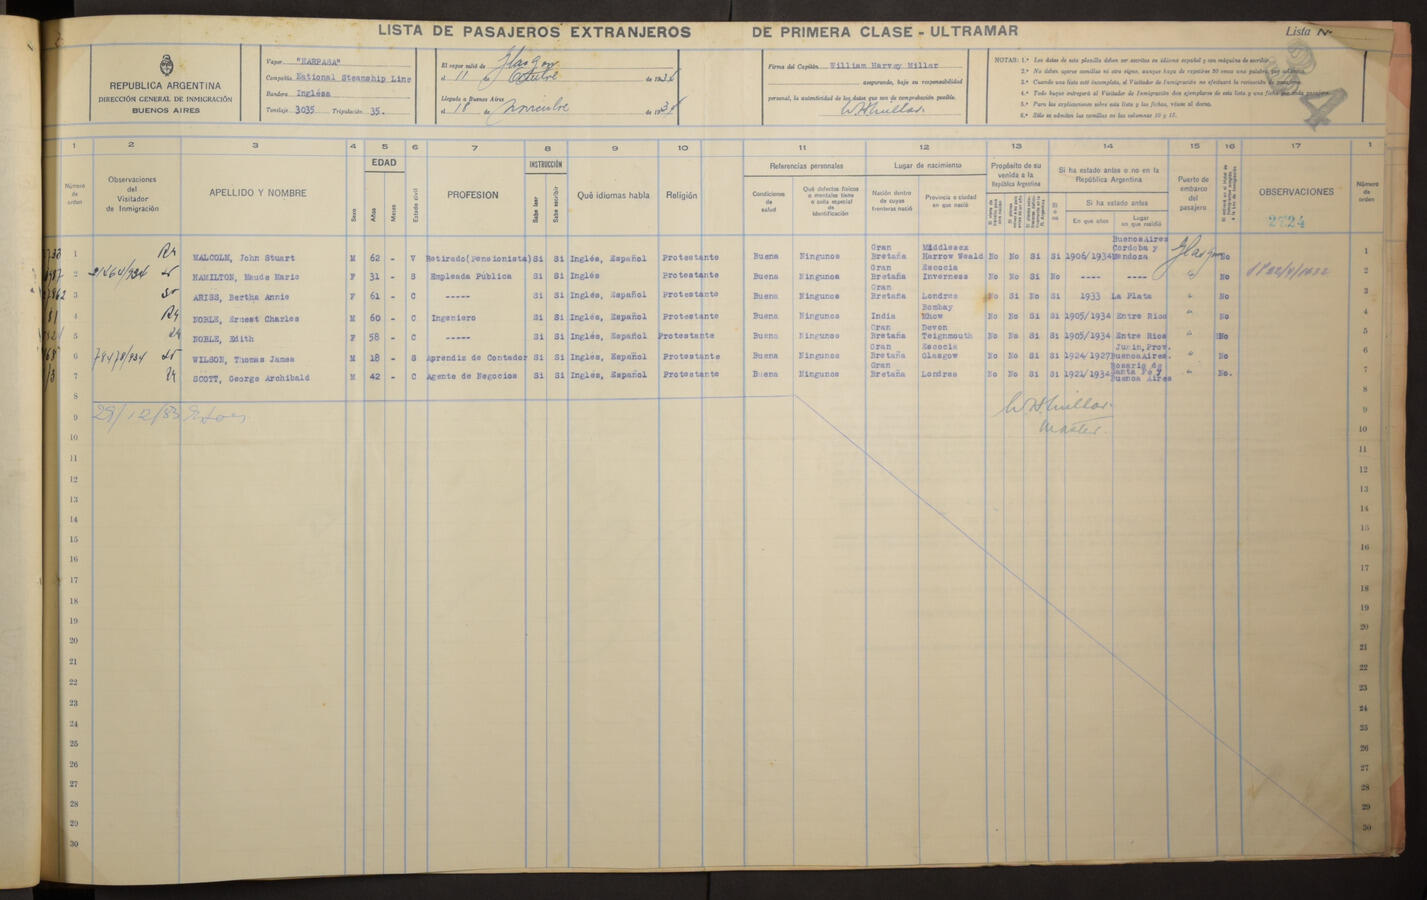 LISTA DE PASAJEROS EXTRANJEROS DE PRIMERA CLASE - ULTRAMAR
Lista
REPUBLICA ARGENTINA
DIRECCIÓN GENERAL DE INMIGRACIÓN
BUENOS AIRES
Vapor "HARPASA"
Compañía National Steamship Line
Bandera Inglésa
Tonelaje 3035 Tripulación 35.
El vapor salió de Glasgow
el 11 de Octubre de 1934
Llegado a Buenos Aires
el 18 de Noviembre de 1934
Firma del Capitán William Harvey Millar
asegurando, bajo su responsabilidad
personal, la autenticidad de los datos que son de comprobación posible.
W. H. Millar.
NOTAS: 1.ª Los datos de esta planilla deben ser escritos en idioma español y con máquina de escribir.
5.ª Para las explicaciones sobre esta lista y las fichas, véase al dorso.
6.ª Sólo se admiten las comillas en las columnas 10 y 15.
1 2 3 4 5 6 7 8 9 10 11 12 13 14 15 16 17 1
Número de orden
Observaciones del Visitador de Inmigración
APELLIDO Y NOMBRE
Sexo
EDAD
Años
Meses
Estado civil
PROFESION
INSTRUCCIÓN
Sabe leer
Sabe escribir
Qué idiomas habla
Religión
Referencias personales
Condiciones de salud
Qué defectos físicos o mentales tiene o seña especial de identificación
Lugar de nacimiento
Nación dentro de cuyas fronteras nació
Provincia o ciudad en que nació
Propósito de su venida a la República Argentina
Si ha estado antes o no en la República Argentina
Si ha estado antes
En que años
Lugar en que residió
Puerto de embarco del pasajero
OBSERVACIONES
2724
Número de orden
1 MALCOLM, John Stuart M 62 - V Retirado(Pensionista) Si Si Inglés, Español Protestante Buena Ningunos Gran Bretaña Middlesex Harrow Weald No No Si Si 1906/1934 Buenos Aires Cordoba y Mendoza Glasgow No 1
2 21464/934 HAMILTON, Maude Marie F 31 - S Empleada Pública Si Si Inglés Protestante Buena Ningunos Gran Bretaña Escocia Inverness No No Si No ---- ---- " No 2
3 ARISS, Bertha Annie F 61 - C ----- Si Si Inglés, Español Protestante Buena Ningunos Gran Bretaña Londres No Si No Si 1933 La Plata " No 3
4 NOBLE, Ernest Charles M 60 - C Ingeniero Si Si Inglés, Español Protestante Buena Ningunos India Bombay Mhow No No Si Si 1905/1934 Entre Rios " No 4
5 NOBLE, Edith F 58 - C ----- Si Si Inglés, Español Protestante Buena Ningunos Gran Bretaña Devon Teignmouth No No Si Si 1905/1934 Entre Rios " No 5
6 78478/934 WILSON, Thomas James M 18 - S Aprendiz de Contador Si Si Inglés, Español Protestante Buena Ningunos Gran Bretaña Escocia Glasgow No No Si Si 1924/1927 Junin, Prov. Buenos Aires. " No 6
7 SCOTT, George Archibald M 42 - C Agente de Negocios Si Si Inglés, Español Protestante Buena Ningunos Gran Bretaña Londres No No Si Si 1921/1934 Rosario de Santa Fe y Buenos Aires " No. 7
8 8
9 29/12/83 W. H. Millar. 9
10 Master. 10
11 11
12 12
13 13
14 14
15 15
16 16
17 17
18 18
19 19
20 20
21 21
22 22
23 23
24 24
25 25
26 26
27 27
28 28
29 29
30 30